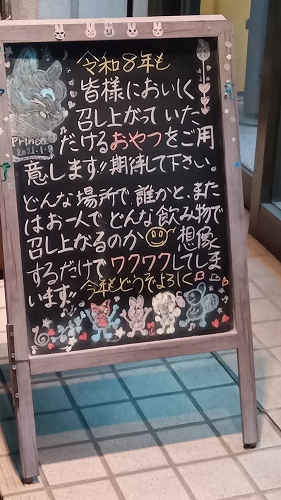 令和8年も
皆様においしく
召し上がっていた
だけるおやつをご用
意します!!期待して下さい。
どんな場所で誰かと、また
はお一人でどんな飲み物で
召し上がるのか想像
するだけでワクワクしてしま
います。
今年もどうぞよろしく
Prince